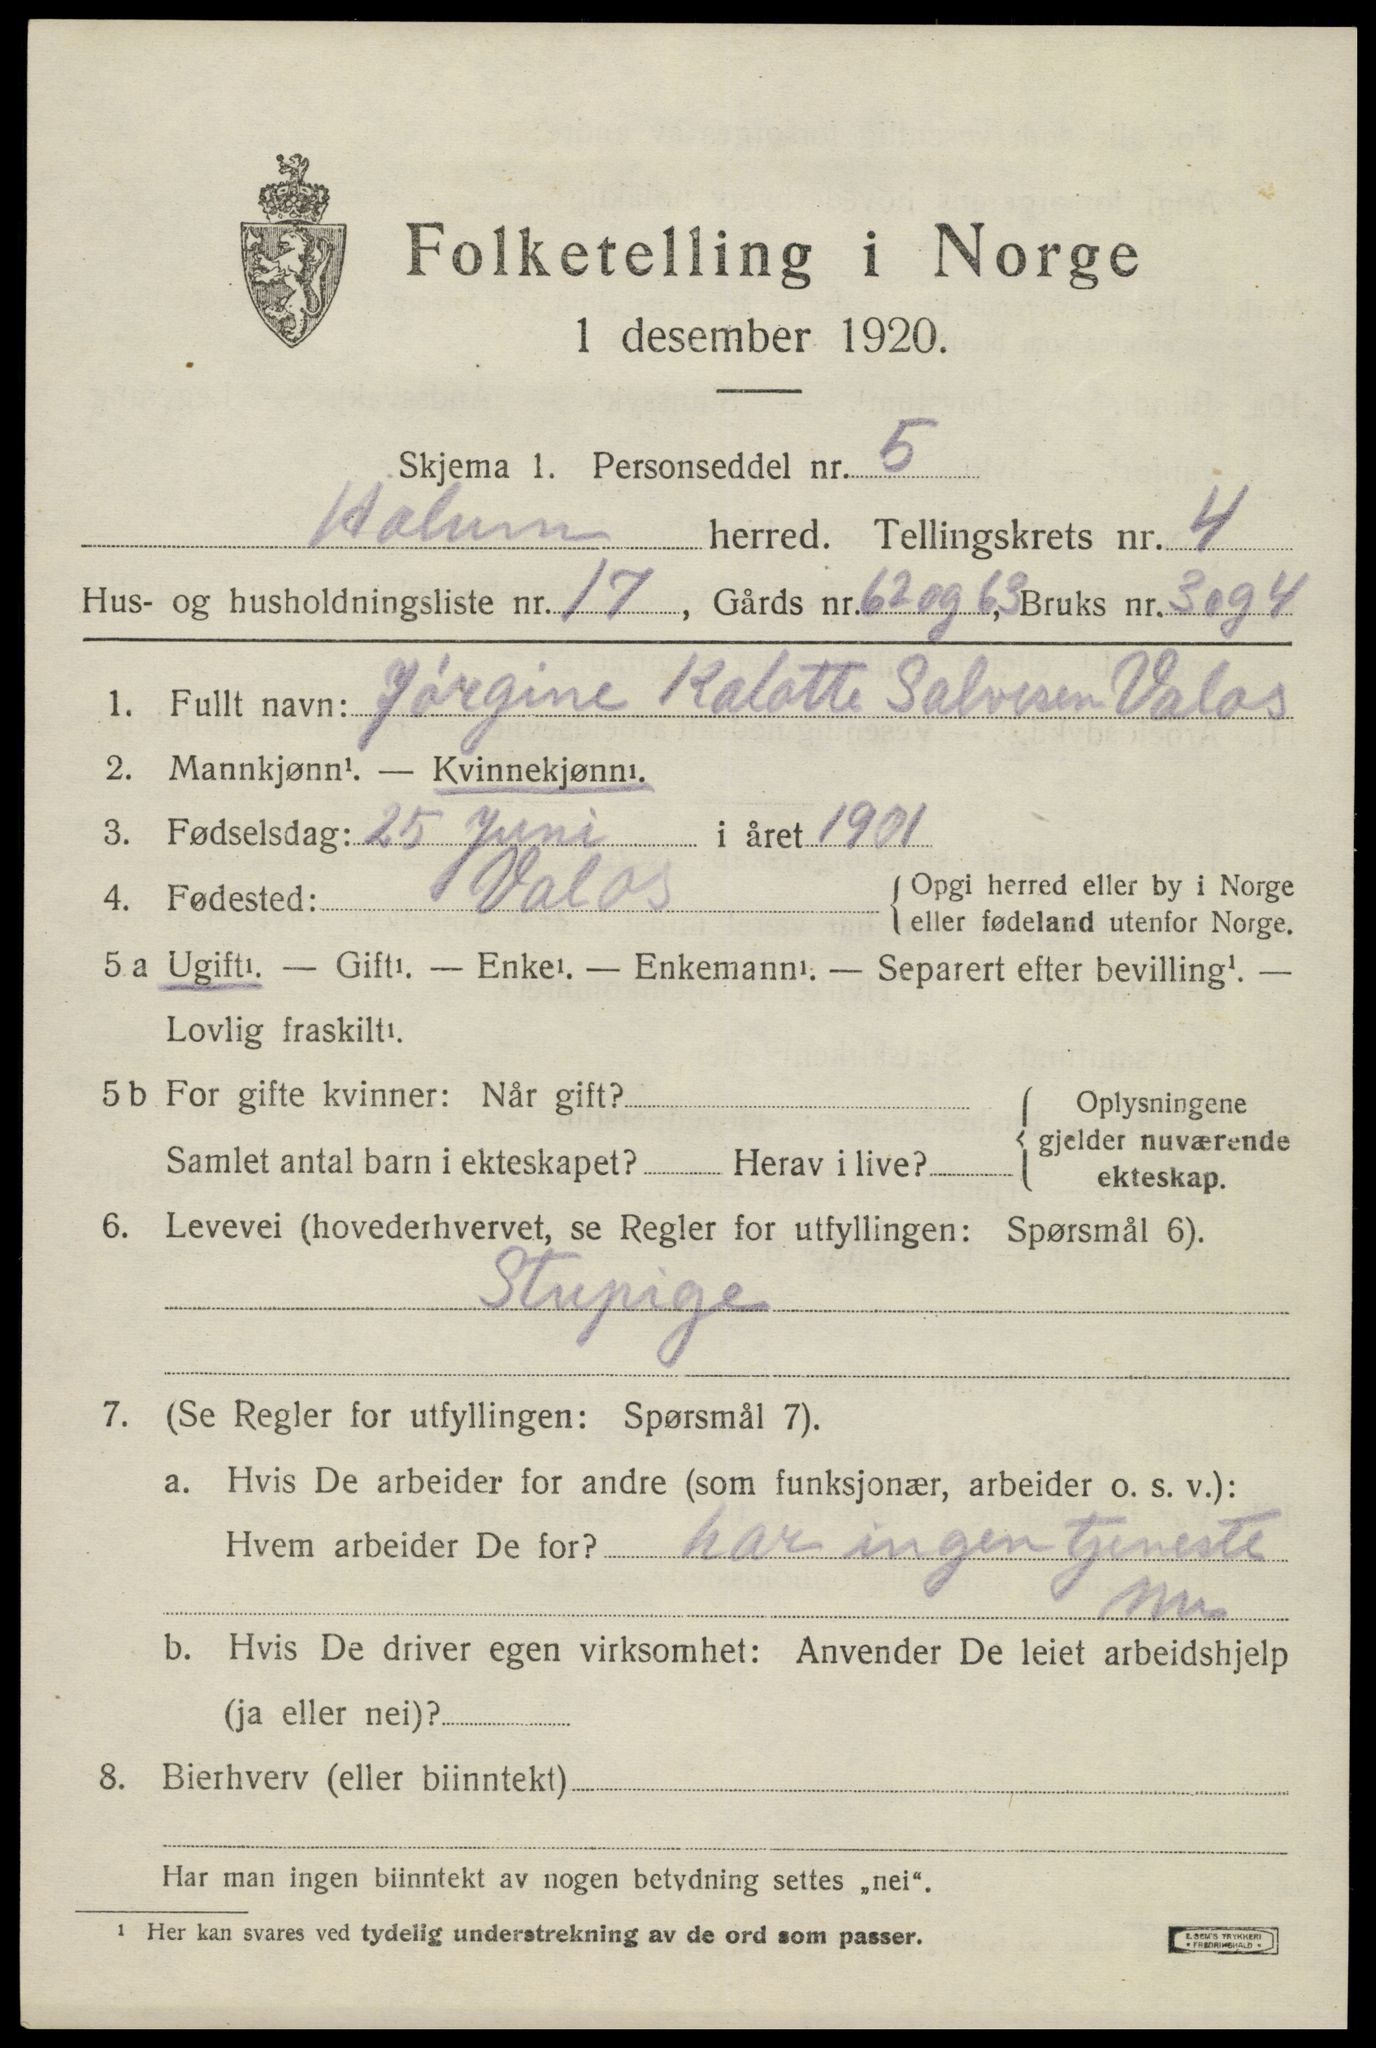 Folketelling i Norge
1 desember 1920.
Skjema 1. Personseddel nr. 5
Holum herred. Tellingskrets nr. 4
Hus- og husholdningsliste nr. 17, Gårds nr. 62 og 63, Bruks nr. 3 og 4
1. Fullt navn: Jørgine Kalotte Salvesen Valos
2. Mannkjønn¹. — Kvinnekjønn¹.
3. Fødselsdag: 25 Juni i året 1901
4. Fødested: Valos { Opgi herred eller by i Norge
eller fødeland utenfor Norge.
5 a Ugift¹. — Gift¹. — Enke¹. — Enkemann¹. — Separert efter bevilling¹. —
Lovlig fraskilt¹.
5 b For gifte kvinner: Når gift? { Oplysningene
gjelder nuværende
Samlet antal barn i ekteskapet? Herav i live? ekteskap.
6. Levevei (hovederhvervet, se Regler for utfyllingen: Spørsmål 6).
Stupige
7. (Se Regler for utfyllingen: Spørsmål 7).
a. Hvis De arbeider for andre (som funksjonær, arbeider o. s. v.):
Hvem arbeider De for? har ingen tjeneste
nu
b. Hvis De driver egen virksomhet: Anvender De leiet arbeidshjelp
(ja eller nei)?
8. Bierhverv (eller biinntekt)
Har man ingen biinntekt av nogen betydning settes „nei“.
¹ Her kan svares ved tydelig understrekning av de ord som passer.
E. SEM'S TRYKKERI
• FREDRIKSHALD •